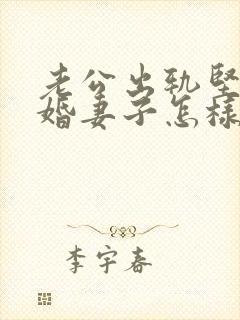 老公出轨坚
婚妻子怎样
李宇春